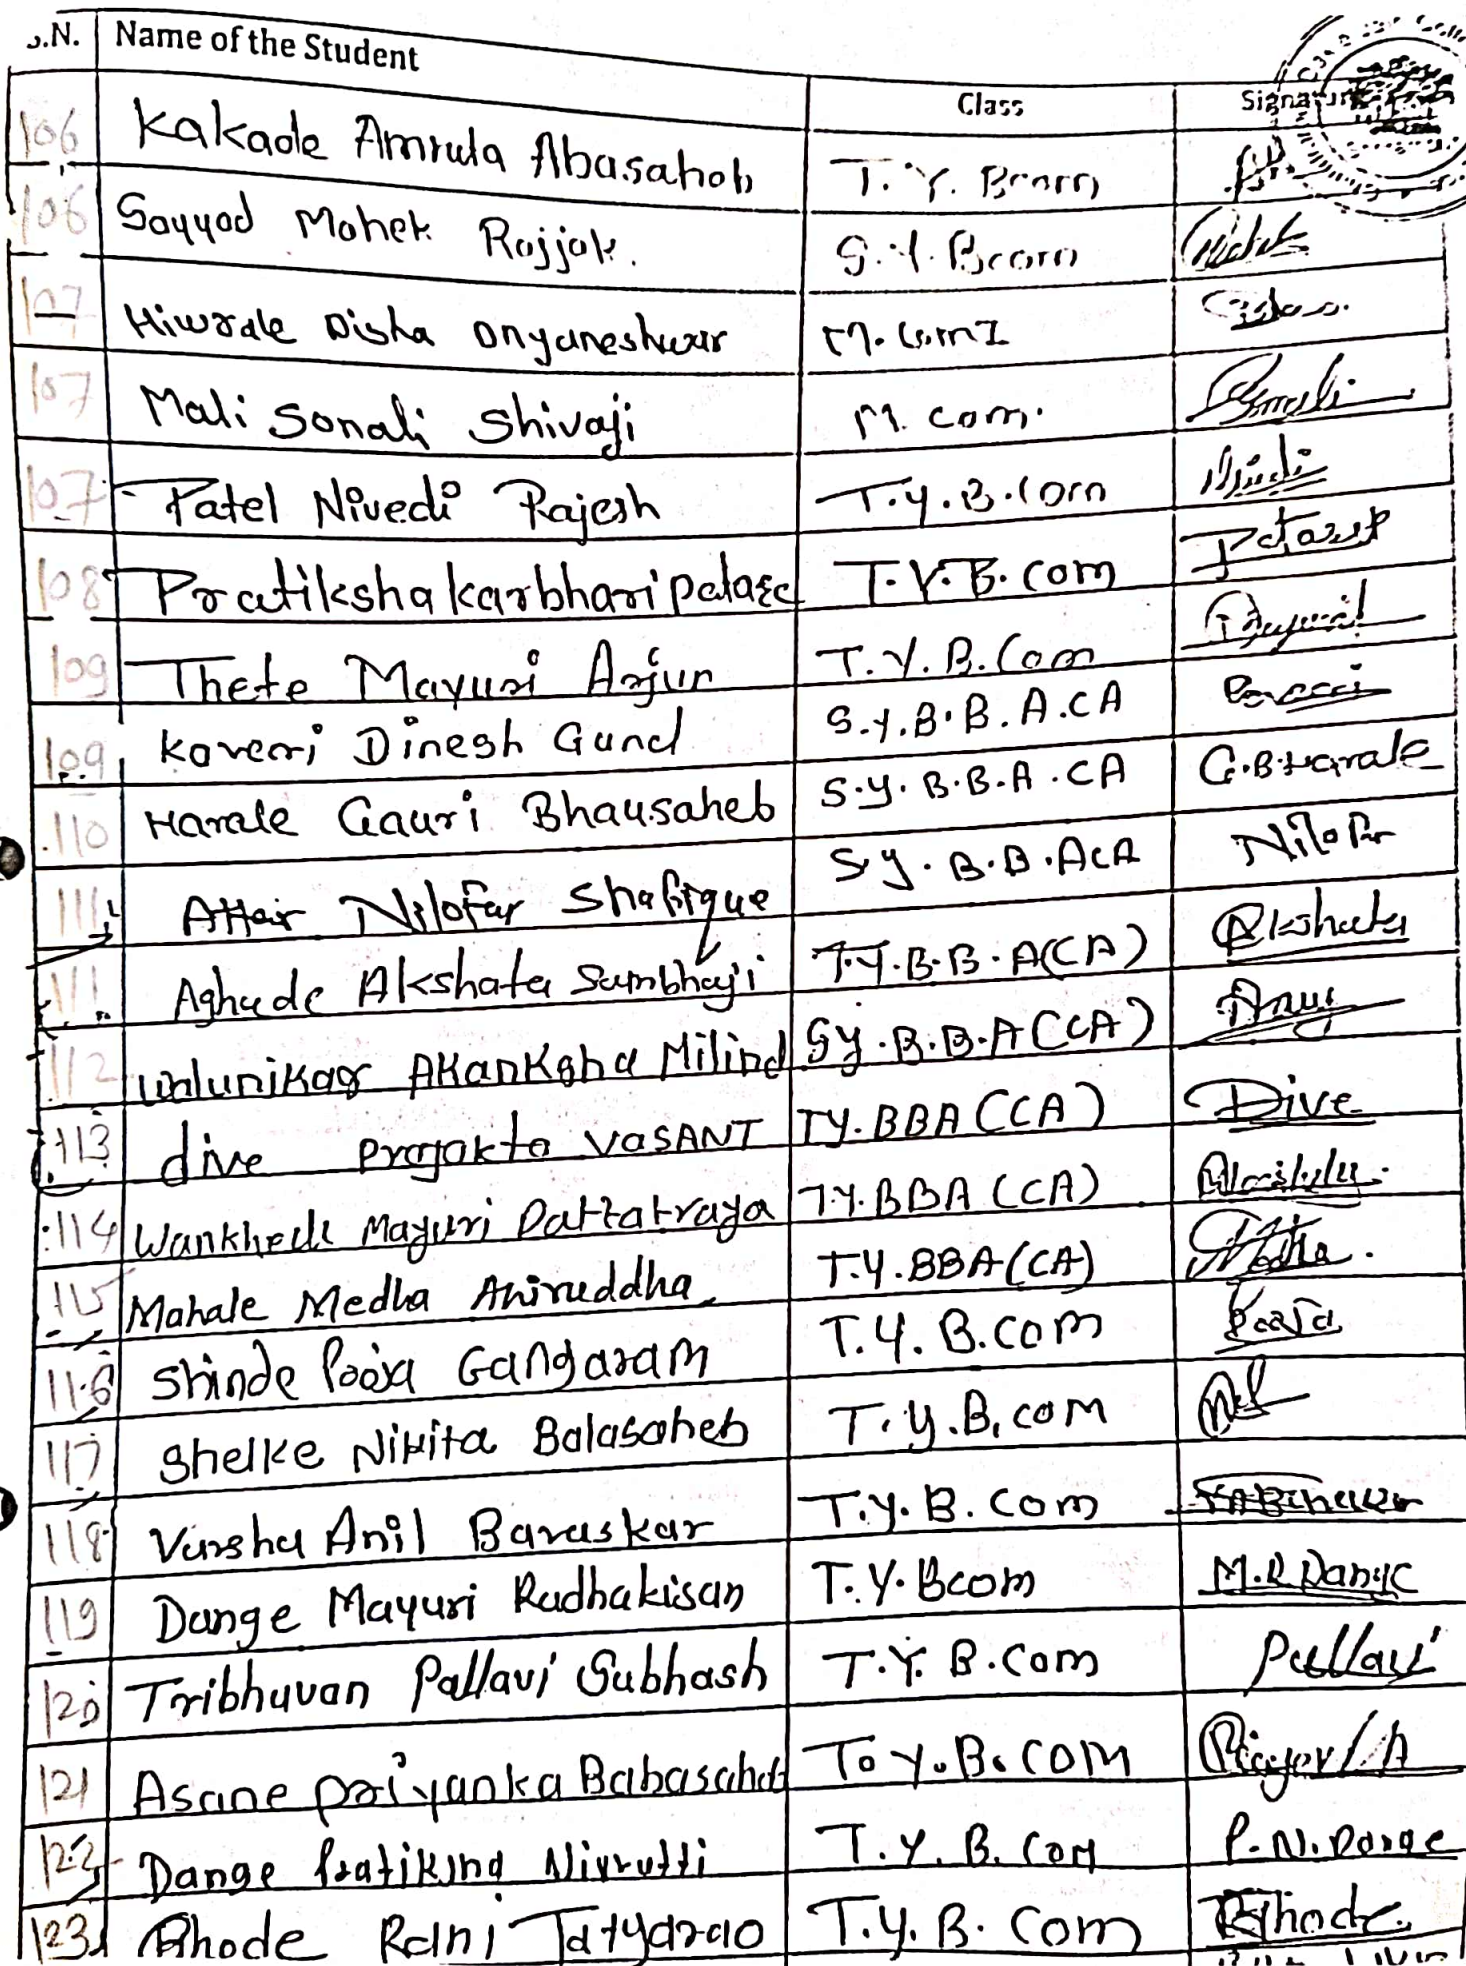 S.N. Name of the Student Class Signature
106 Kakade Amruta Abasaheb T.Y. Bcom
106 Sayyad Mahek Rajjak. S.Y. Bcom
107 Hiwrale Disha Dnyaneshwar M. Com I
107 Mali Sonali Shivaji M. com.
107 Patel Nivedi Rajesh T.Y.B.Com
108 Pratiksha karbhari patare T.Y.B.com
109 Thete Mayuri Arjun T.Y.B.Com
109 Kaveri Dinesh Gund S.Y.B.B.A.CA
110 Harale Gauri Bhausaheb S.Y.B.B.A.CA G.B.Harale
111 Attar Nilofar Shafique S.Y.B.B.A CA Nilofar
111 Aghade Akshata Sambhaji T.Y.B.B.A(CA) Akshata
112 Walunikar Akanksha Milind S.Y.B.B.A(CA)
113 dive prajakta VASANT TY.BBA (CA) Dive
114 Wankhede Mayuri Dattatraya T.Y.BBA (CA)
115 Mahale Medha Aniruddha T.Y.BBA(CA) Medha.
116 Shinde Pooja Gangaram T.Y.B.COM Pooja
117 Shelke Nikita Balasaheb T.Y.B.COM
118 Varsha Anil Bavaskar T.Y.B.Com
119 Dange Mayuri Radhakisan T.Y.Bcom M.R Dange
120 Tribhuvan Pallavi Subhash T.Y.B.Com Pallavi
121 Asane Priyanka Babasaheb T.Y.B.COM
122 Dange Pratiksha Nivrutti T.Y.B.COM P.N.Dange
123 Rhode Rani Tatyarao T.Y.B.Com Rhode